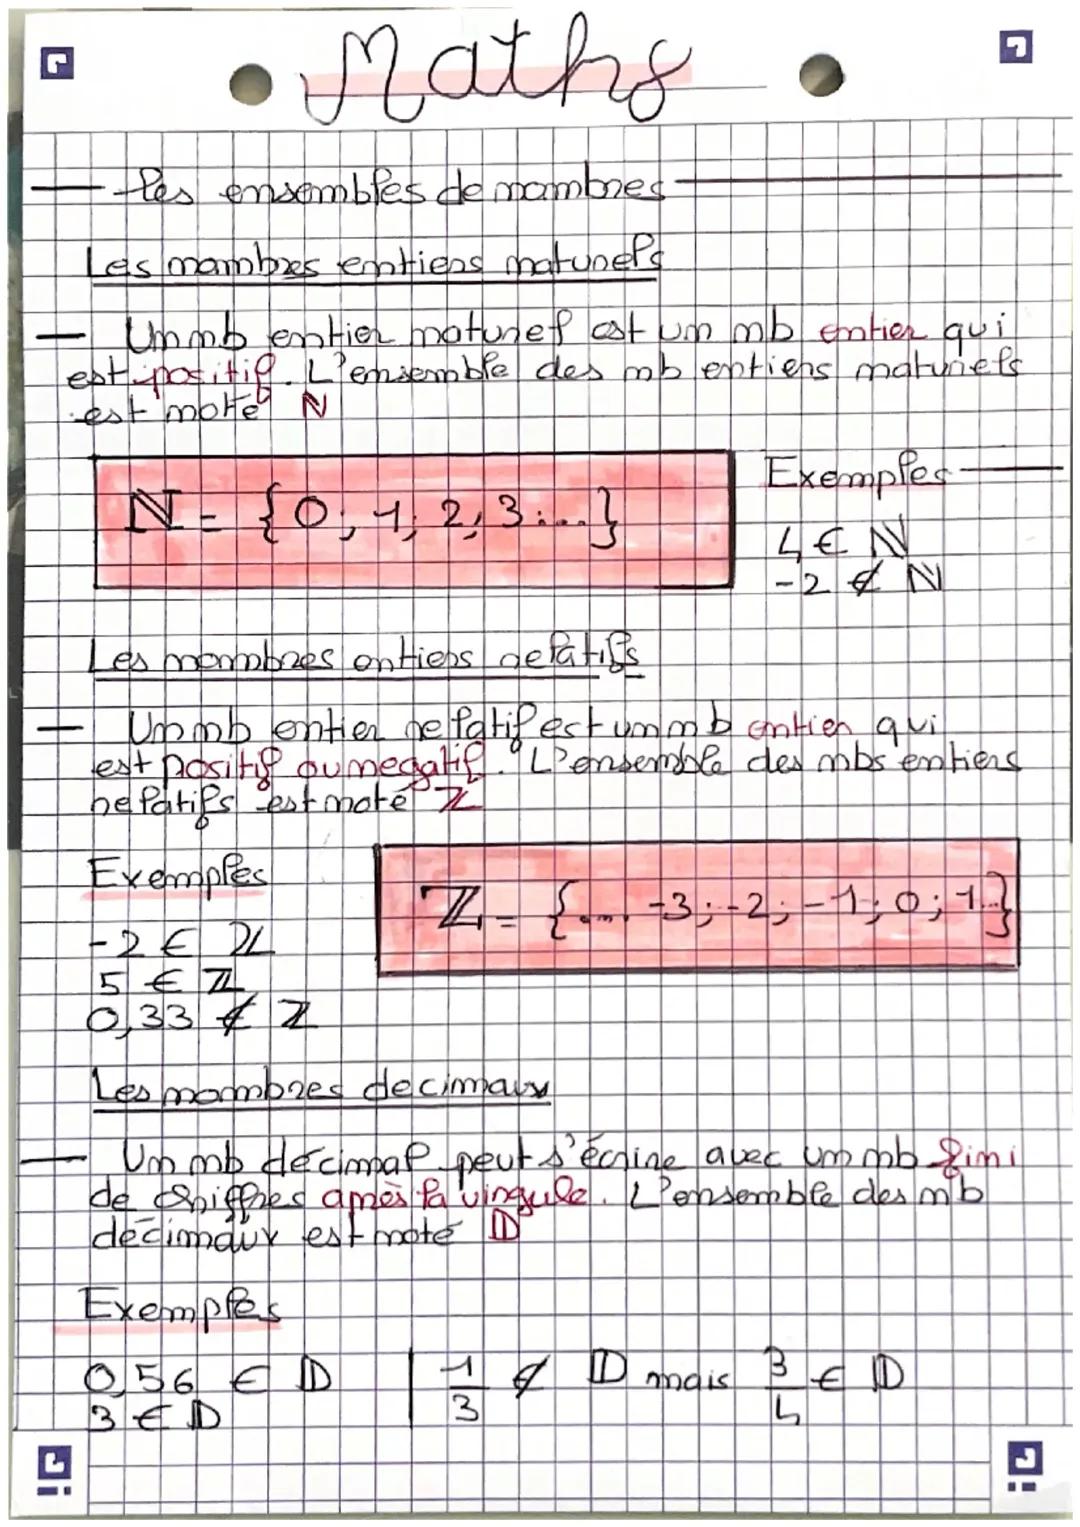 Maths
Les ensembles de nombres
Les nombres entiers naturels
Un nb entier naturel est un nb entier qui
est positif. L'ensemble des nb entiers naturels
est noté ℕ
ℕ = {0; 1; 2; 3; ...}
Exemples
4 ∈ ℕ
-2 ∉ ℕ
Les nombres entiers relatifs
Un nb entier relatif est un nb entier qui
est positif ou negatif. L'ensemble des nbs entiers
relatifs est noté ℤ
Exemples
-2 ∈ ℤ
5 ∈ ℤ
0,33 ∉ ℤ
ℤ = {.... -3; -2; -1; 0; 1...}
Les nombres decimaux
Un nb décimal peut s'écrire avec un nb fini
de chiffres après la virgule. L'ensemble des nb
décimaux est noté 𝔻
Exemples
0,56 ∈ 𝔻
3 ∈ 𝔻
1/3 ∉ 𝔻 mais 3/4 ∈ 𝔻